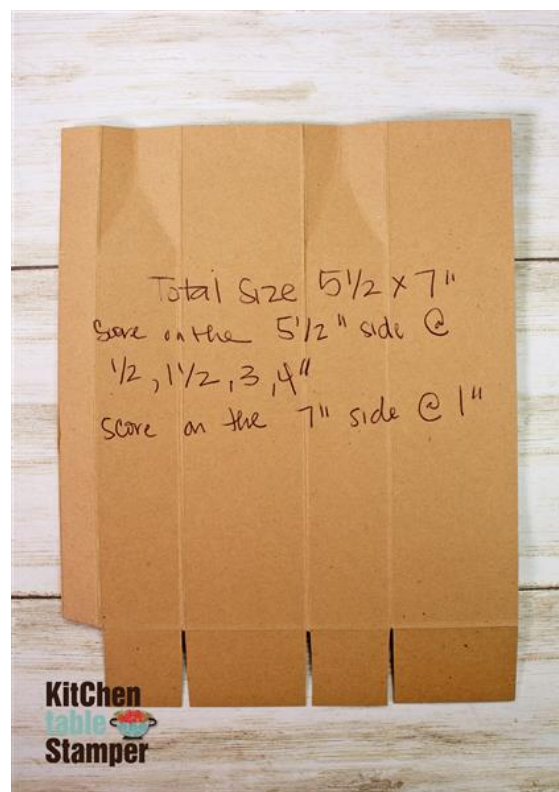 Total Size 5 1/2 x 7"
Score on the 5 1/2" side @
1/2, 1 1/2, 3, 4"
Score on the 7" side @ 1"
KitChen
table
Stamper